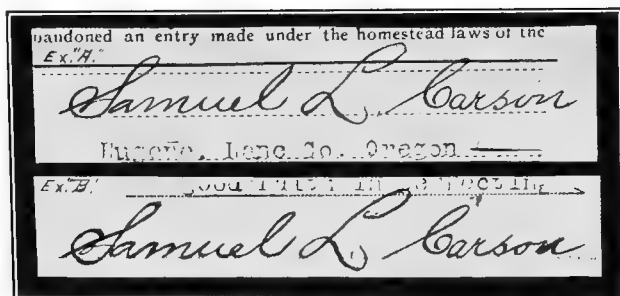 bandoned an entry made under the homestead laws of the
Ex. "A."
Samuel L. Carson
Eugene, Lane Co. Oregon
Ex. "B."
good faith in
Samuel L. Carson